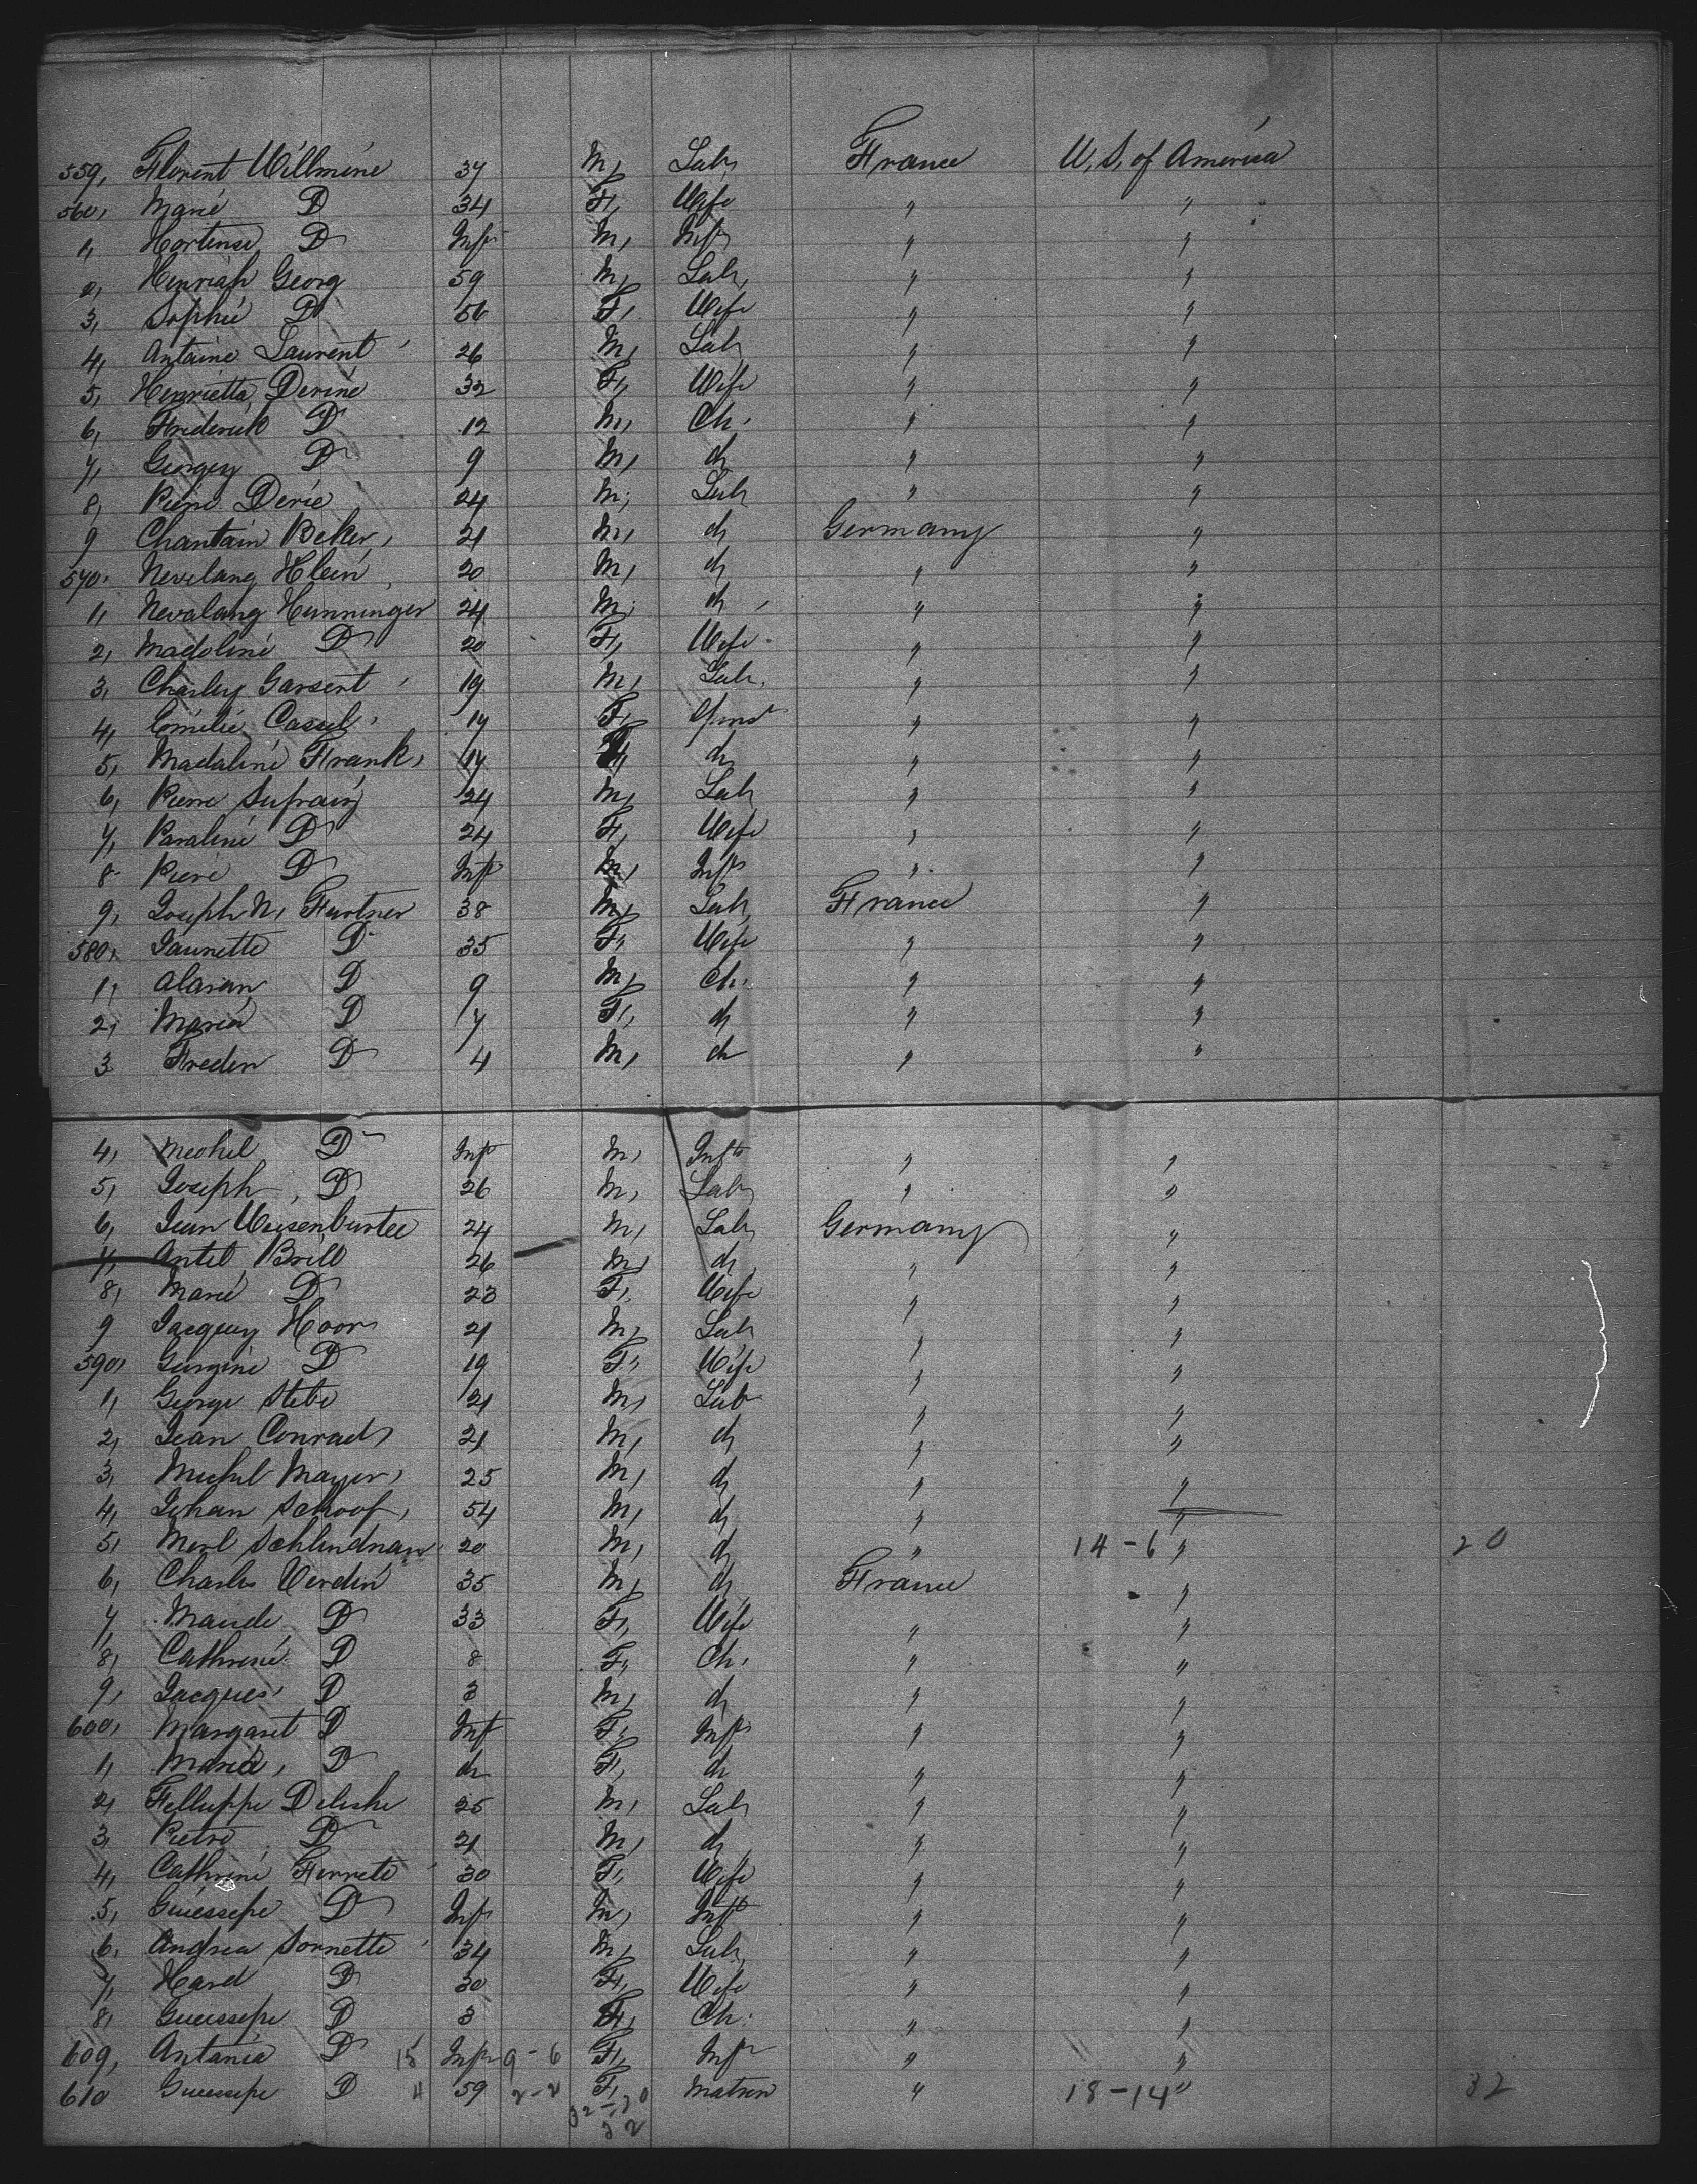 559, Florent Willmine 37 M, Lab, France U, S, of America
560, Marie D 34 F, Wife " "
1, Hortense D Inft M, Inft " "
2, Henriah Georg 59 M, Lab, " "
3, Sophie D 56 F, Wife " "
4, Antaine Laurent 26 M, Lab " "
5, Henrietta Derine 32 F, Wife " "
6, Frederick D 12 M, Ch, " "
7, Georgey D 9 M, d " "
8, Pierre Derie 24 M, Lab " "
9 Chantain Beker, 21 M, d Germany "
570, Nevelang Klein 20 M, d " "
1, Nevalang Hunninger 24 M, d " "
2, Madoline D 20 F, Wife " "
3, Charley Garsent 19 M, Lab, " "
4, Emilie Cassel, 17 F, " "
5, Madaline Frank, 17 F, d " "
6, Pierre Sufrain 24 M, Lab " "
7, Paraline D 24 F, Wife " "
8 Piere D Inft M, Inft " "
9, Joseph N, Furtner 38 M, Lab, France "
580, Jaunette D 35 F, Wife " "
1, Alaran D 9 M, Ch, " "
2, Maria D 7 F, d " "
3 Freden D 4 M, d " "
4, Mechel D Inft M, Inft " "
5, Joseph, D 26 M, Lab " "
6, Jean Weisenburtee 24 M, Lab Germany "
7, Antel Brill 26 M, d " "
8, Marie D 23 F, Wife " "
9 Jacquey Hoor 21 M, Lab " "
590, Gurgine D 19 F, Wife " "
1, George Stebe 21 M, Lab " "
2, Jean Conrad 21 M, d " "
3, Michel Mayer, 25 M, d " "
4, Johan Schoof, 54 M, d " "
5, Merl Schlindnan 20 M, d " 14 - 6 " 20
6, Charles Verdin 35 M, d France "
7, Maude, D 33 F, Wife " "
8, Cathrine D 8 F, Ch, " "
9, Jacques D 3 M, d " "
600, Margaret D Inft F, Inft " "
1, Maria, D d F, d " "
2, Felluppe Deleshe 25 M, Lab " "
3, Pietro D 21 M, d " "
4, Cathrine Ferrete 30 F, Wife " "
5, Guiessepe D Inft M, Inft " "
6, Andrea Sornette 34 M, Lab, " "
7, Hard D 30 F, Wife " "
8, Guiessepe D 3 F, Ch, " "
609, Antania D 15 Inft 9 - 6 F, Inft " "
610 Guessepe D 11 59 2 - 2 F, Matron " 18 - 14 " 32
32 - 20
32